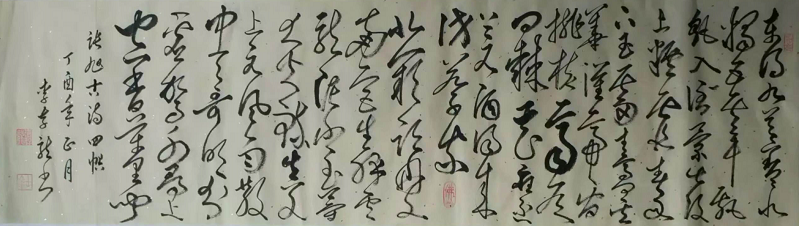 東明九芝蓋北
燭五雲車飄
飖入倒景出沒
上煙霞春泉
下玉霤青鳥向金
華漢帝看
桃核齊侯
問棘花應逐
上元酒同來
訪蔡家
北闕臨丹水
南宮生絳雲
龍泥印玉簡
大火煉真文
上元風雨散
中天哥吹分
虛駕千尋上
空香萬里聞
張旭古詩四帖
丁酉年正月